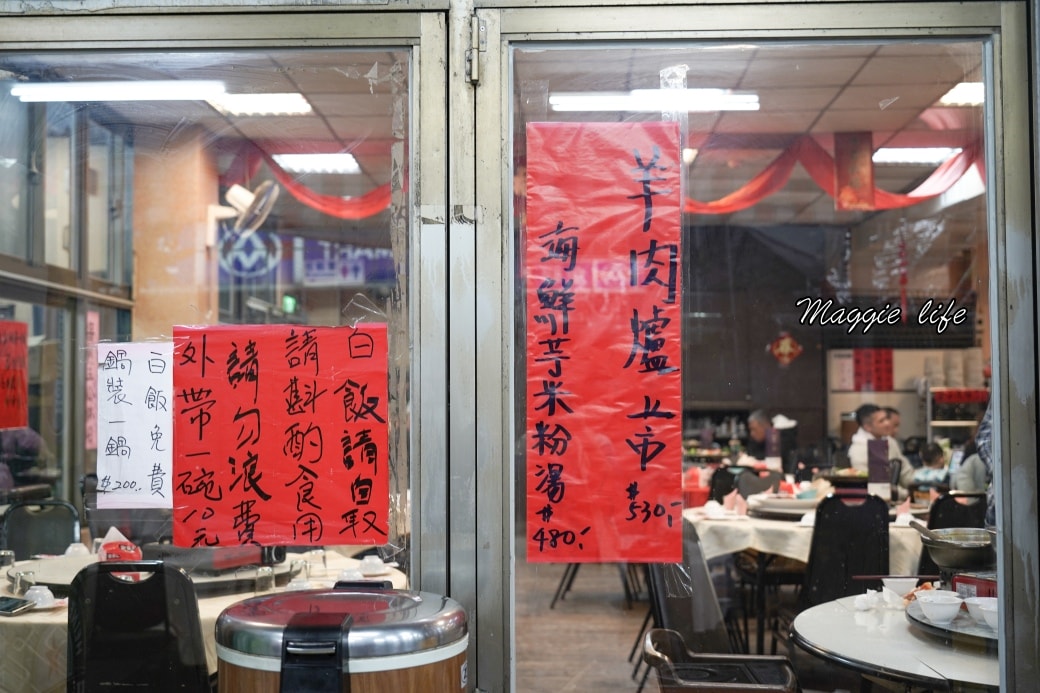 白飯免費
鍋裝一鍋
$200..
白飯請自取
請斟酌食用
請勿浪費
外帶一碗10元
羊肉爐上市
$530,-
海鮮芋米粉湯
$480,-
Maggie life